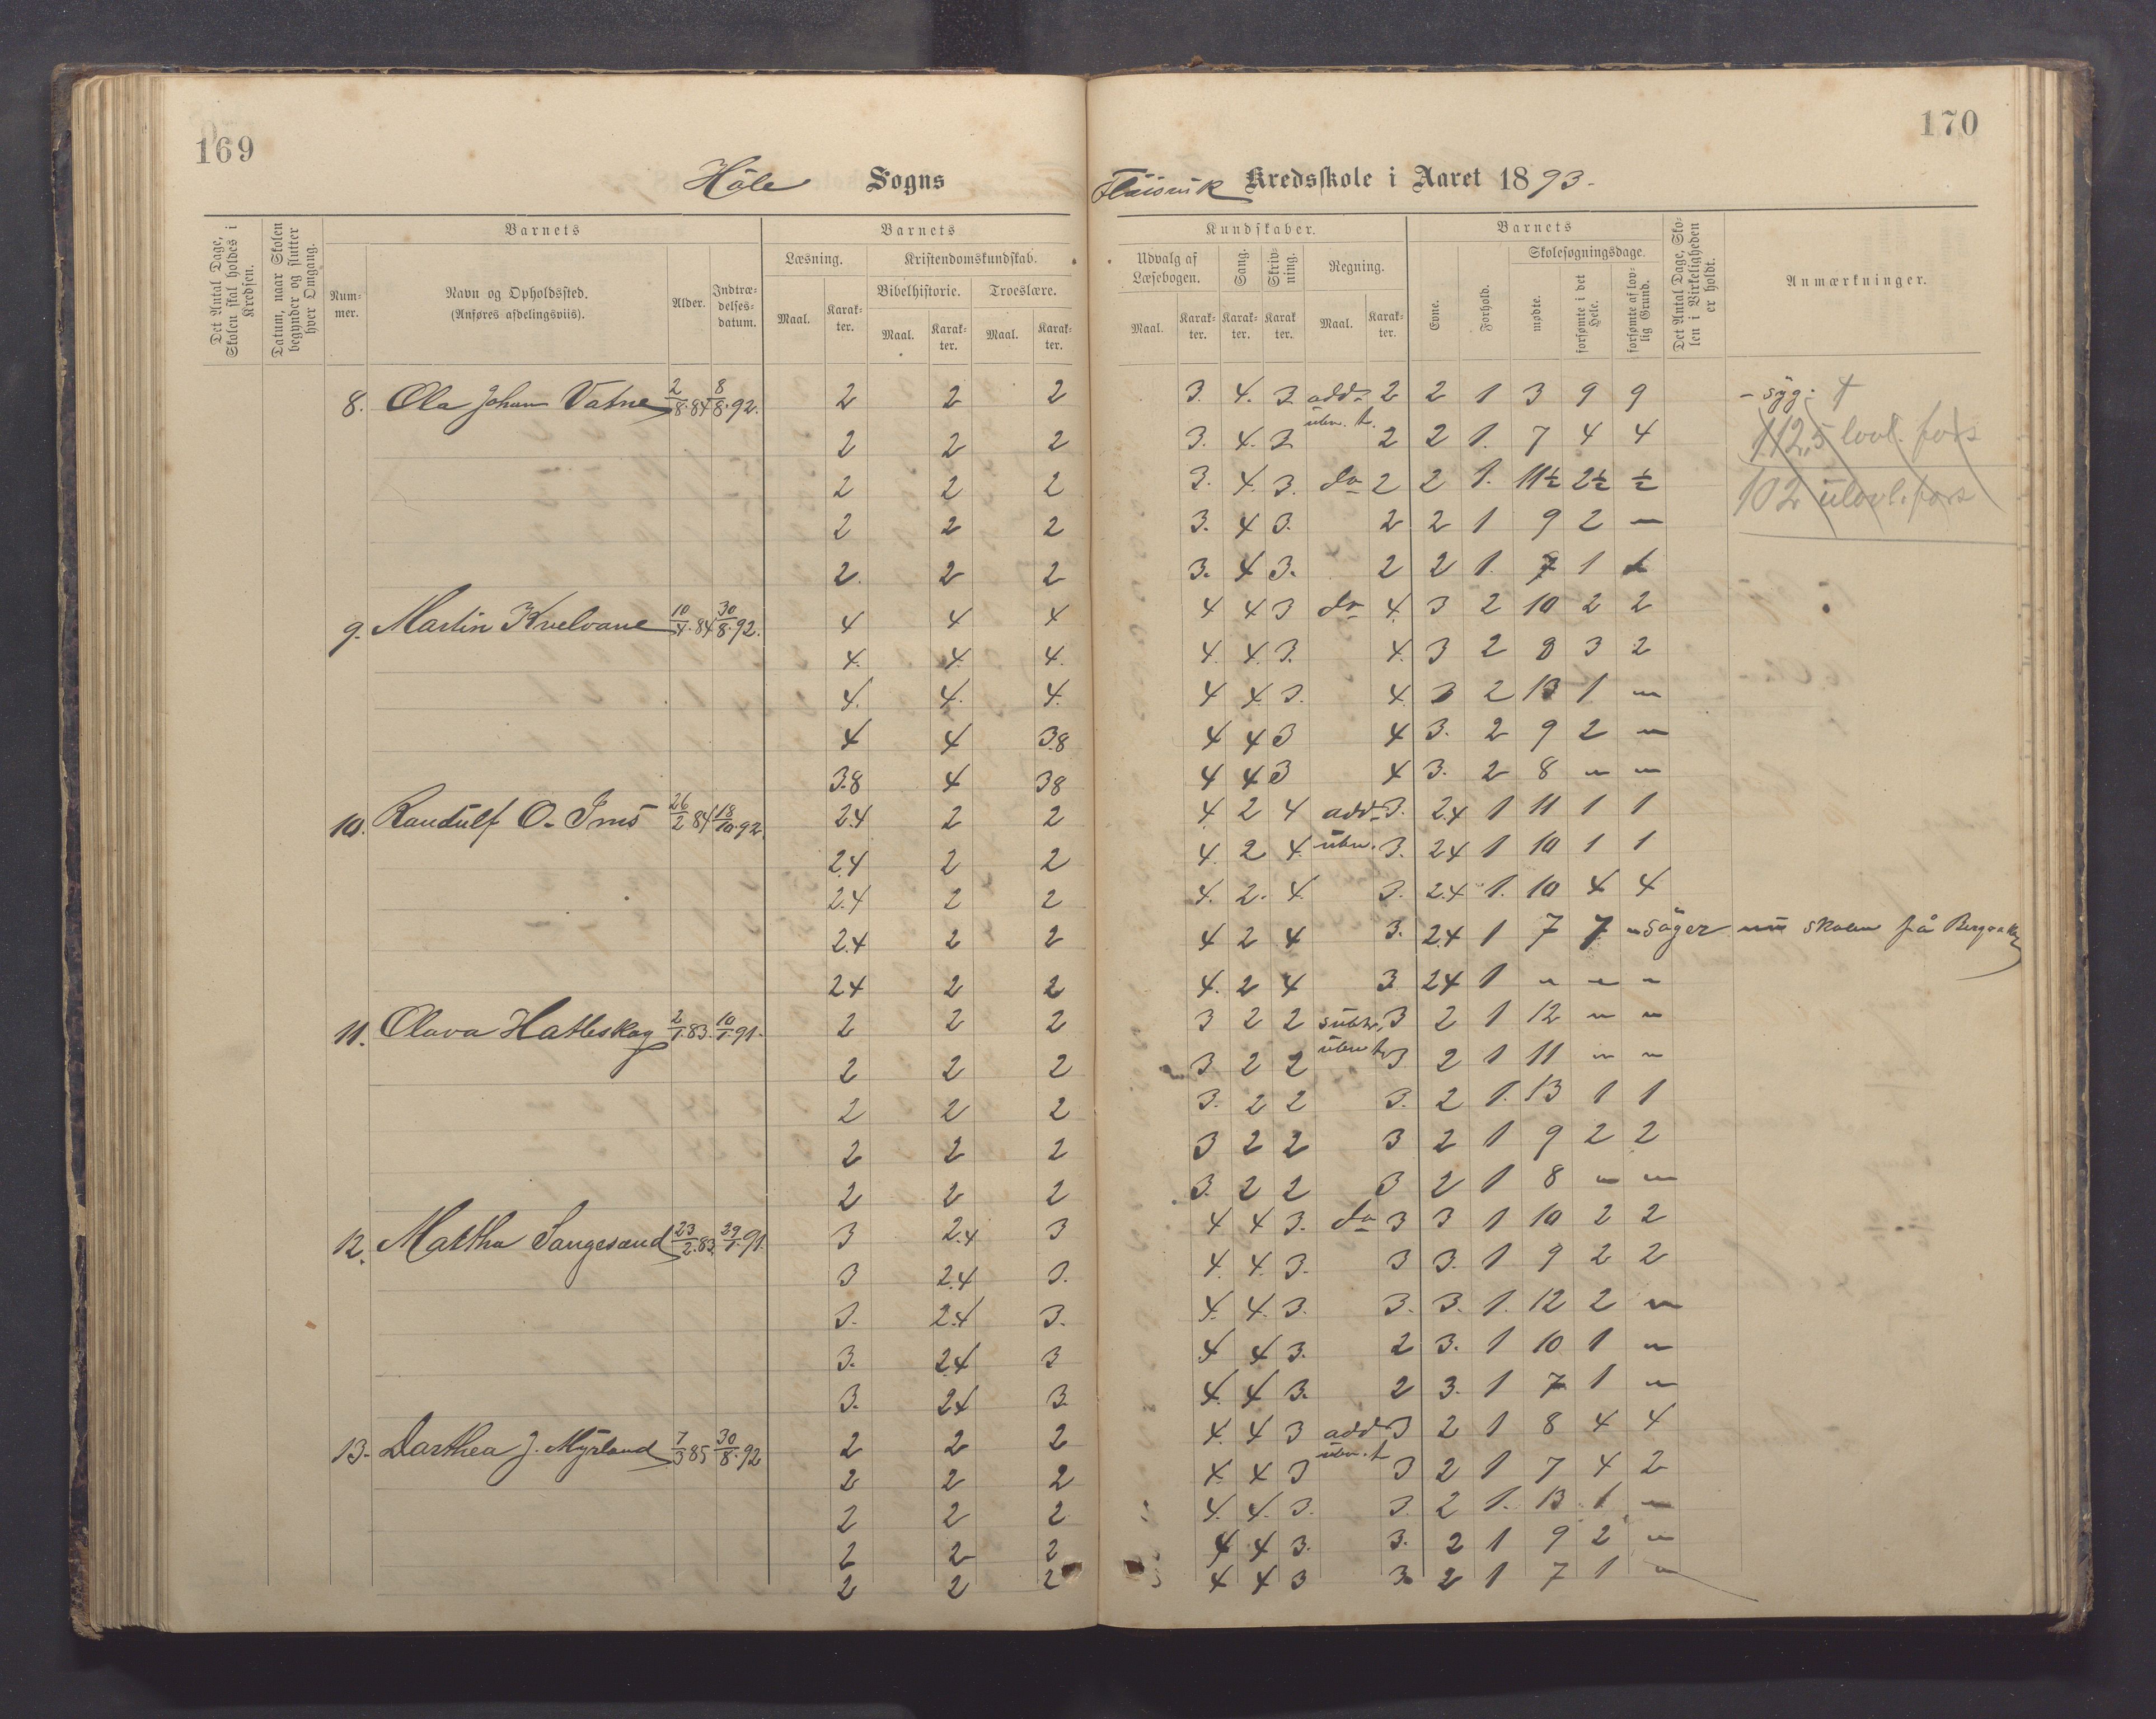 169
170
Höle Sogns
Kredsskole i Aaret 1893.
Det Antal Dage, Skolen skal holdes i Kredsen.
Datum, naar Skolen begynder og slutter hver Omgang.
Barnets
Num-
mer.
Navn og Opholdssted.
(Anføres afdelingsviis).
Alder.
Indtræ-
delses-
datum.
Barnets
Læsning.
Maal.
Karak-
ter.
Kristendomskundskab.
Bibelhistorie.
Maal.
Karak-
ter.
Troeslære.
Maal.
Karak-
ter.
Kundskaber.
Udvalg af
Læsebogen.
Maal.
Karak-
ter.
Sang.
Karak-
ter.
Skriv-
ning.
Karak
ter.
Regning.
Maal.
Karak-
ter.
Barnets
Evne.
Forhold.
Skolesøgningsdage.
mødte.
forsømte i det Hele.
forsømte af lov-
lig Grund.
Det Antal Dage, Sko-
len i Virkeligheden
er holdt.
Anmærkninger.
8. Ola Johan Vatne 2/8.84 8/8.92. 2 2 2 3. 4. 3 add. 2 2 1 3 9 9 - syg.
2 2 2 3. 4. 3 übn. t. 2 2 1. 7 4 4 112,5 lovl. fors
2 2 2 3. 4. 3. do 2 2 1. 11½ 2½ ½ 102 ulovl. fors
2 2 2 3. 4 3. 2 2 1 9 2 "
2. 2 2 3. 4 3. 2 2 1. 7 1 1
9. Martin Kvelvane 10/4.84 30/8.92. 4 4 4 4 4 3 do 4. 3 2 10 2 2
4. 4. 4. 4. 4. 3. 4. 3 2 8 3 2
4. 4. 4. 4 4. 3. 4. 3 2 13 1 "
4 4 3.8 4 4 3 4 3. 2 9 2 "
3.8 4 38 4 4 3 4 3. 2 8 " "
10. Randülf O. Ims 26/2 84 18/10.92 2.4 2 2 4 2 4 add. 3. 2.4 1 11 1 1
2.4 2 2 4. 2 4. übn. 3. 2.4 1 10 1 1
2.4 2 2 4. 2. 4. 3. 2.4 1. 10 4 4
2.4 2 2 4 2 4 3. 2.4 1 7 7 " söger nu skolen på
2.4 2 2 4. 2 4 3 24 1 " " "
11. Olava Hatleskog 2/1.83. 10/1.91. 2 2 2 3 2 2 sübtr. 3 2 1 12 " "
2 2 2 3 2 2 übn t. 3 2 1 11 " "
2 2 2 3. 2 2 3. 2 1. 13 1 1
2 2 2 3 2 2 3 2 1 9 2 2
2 2 2 3. 2 2 3 2 1 8 " "
12. Martha Sangesand 23/2.83. 29/1.91. 3 2.4 3 4 4 3. do 3 3 1 10 2 2
3 2.4 3. 4. 4. 3. 3 3. 1 9 2 2
3. 2.4 3. 4. 4. 3. 3. 3. 1. 12 2 "
3. 2.4 3 4 4 3. 2 3. 1 10 1 "
3. 2.4 3. 4. 4 3. 2 3. 1 7 1 "
13. Darthea J. Myrland 7/3 85 30/8.92 2 2 2 4. 4 3 add 3 2 1 8 4 4
2 2 2 4. 4 3 übn. t 3 2 1 7 4 2
2 2 2 4. 4. 3. 3. 2 1. 13 1 "
2 2 2 4 4 3. 3. 2 1 9 2 "
2 2 2 4 4 3 3. 2 1 7 1 "